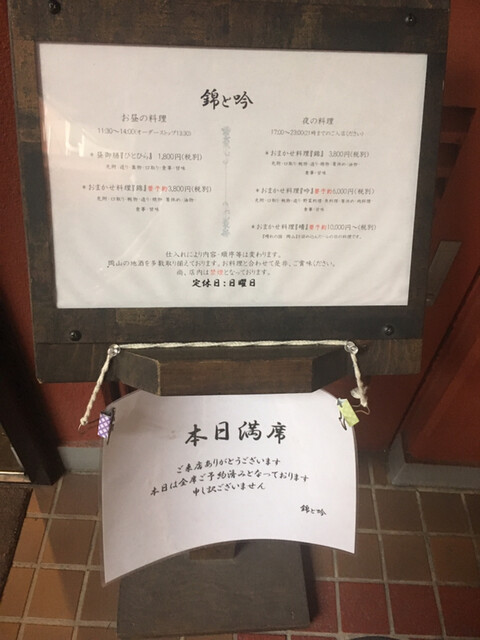 錦と吟
お昼の料理
11:30～14:00(オーダーストップ13:30)
1,800円(税別)
先附・口取り
食事・甘味
＊おまかせ料理【錦】要予約3,800円(税別)
食事・甘味
夜の料理
17:00～23:00
＊おまかせ料理『錦』 3,800円(税別)
食事・甘味
＊おまかせ料理『吟』要予約6,000円(税別)
食事・甘味
＊おまかせ料理【晴】要予約10,000円～(税別)
仕入れにより内容・順序等は変わります。
岡山の地酒を多数取り揃えております。お料理と合わせて是非、ご賞味ください。
尚、店内は禁煙となっております。
定休日：日曜日
本日満席
ご来店ありがとうございます
本日は全席ご予約済みとなっております
申し訳ございません
錦と吟